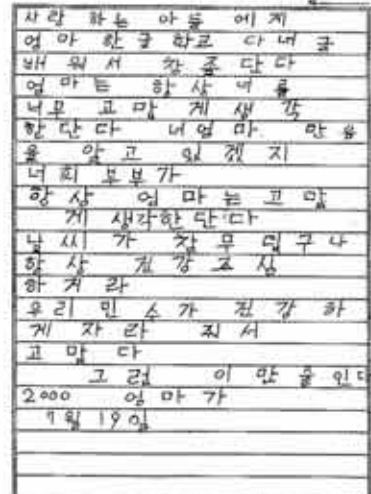 사랑 하는 아들 에게
엄마 한글 학교 다녀 글
배워서 참 좋단다
엄마는 항상 너를
너무 고맙게 생각
한단다 너 엄마 만음
을 알고 있겠지
너희 부부가
항상 엄마는 고맙
게 생각한단다
날씨가 참 무덥구나
항상 건강 조심
하게라
우리 민수가 건강하
게 자라 줘서
고맙다
그럼 이만 줄인다
2000 엄마가
7월 19일